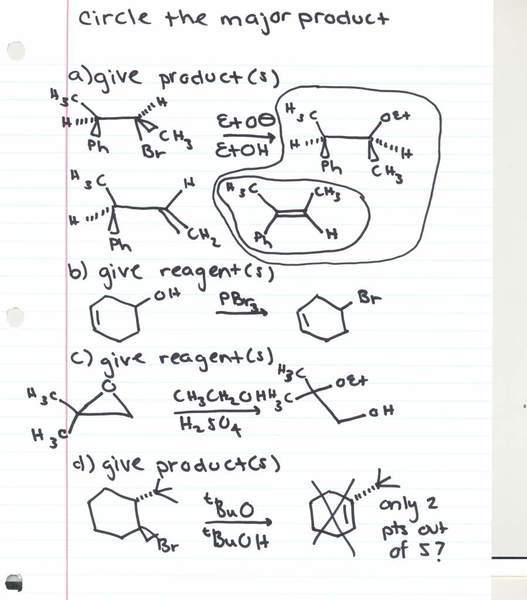 Circle the major product
a) give product(s)
H₃C H H Ph Br CH₃ EtO⊖ EtOH H₃C OEt H Ph CH₃ H
H₃C H H Ph CH₂ H₃C CH₃ Ph H
b) give reagent(s)
OH PBr₃ Br
c) give reagent(s)
H₃C H₃C O CH₃CH₂OH H₂SO₄ H₃C H₃C OEt OH
d) give product(s)
Br ᵗBuO ᵗBuOH
only 2
pts out
of 5?